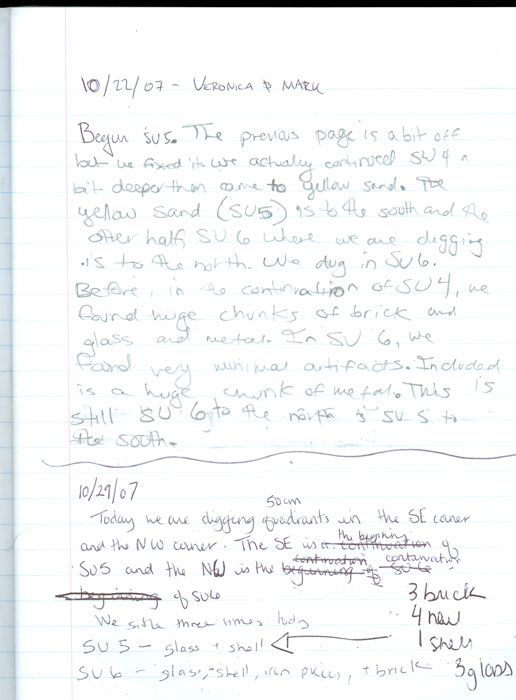 10/22/07 - VERONICA & MARK
Begun SU5. The previous page is a bit off
but we fixed it. We actually continued SU4 a
bit deeper then came to yellow sand. The
yellow sand (SU5) is to the south and the
other half, SU6 where we are digging
is to the north. We dug in SU6.
Before, in the continuation of SU4, we
found huge chunks of brick and
glass and metal. In SU 6, we
found very minimal artifacts. Included
is a huge chunk of metal. This is
still SU 6 to the north & SU 5 to
the south.
10/29/07
50cm
Today we are digging quadrants in the SE corner
the beginning
and the NW corner. The SE is a continuation of
continuation continuation
SU5 and the NW is the beginning of SU6
beginning of SU6
3 brick
We three times
4 nail
SU 5 - glass + shell
1 shell
SU 6 - glass, + shell, iron pieces, + brick
3 glass